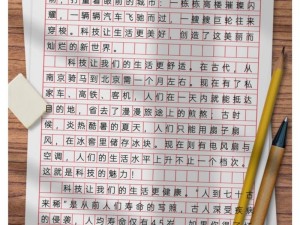 打量着眼前的城市：一栋栋高楼璀璨闪
耀，一辆辆汽车飞驰而过，一艘艘巨轮往来
穿梭。科技让生活更美好，创造了这美丽而
灿烂的新世界。
科技让我们的生活更舒适。在古代，从
南京骑马到北京需一个月左右。现在有了私
家车、高铁、客机，人们在一天内就能抵达
目的地，省去了漫漫旅途上的煎熬。古时
候，炎热酷暑的夏天，人们只能用扇子扇
风，在冰窖里储存冰块。现在则有电风扇与
空调，人们的生活水平上升不止一个档次。
这就是科技的魅力！
科技让我们的生活更健康。“人到七十古
来稀”是从前人们寿命的写照，古人深受疾病
的侵袭，人均寿命仅有45岁